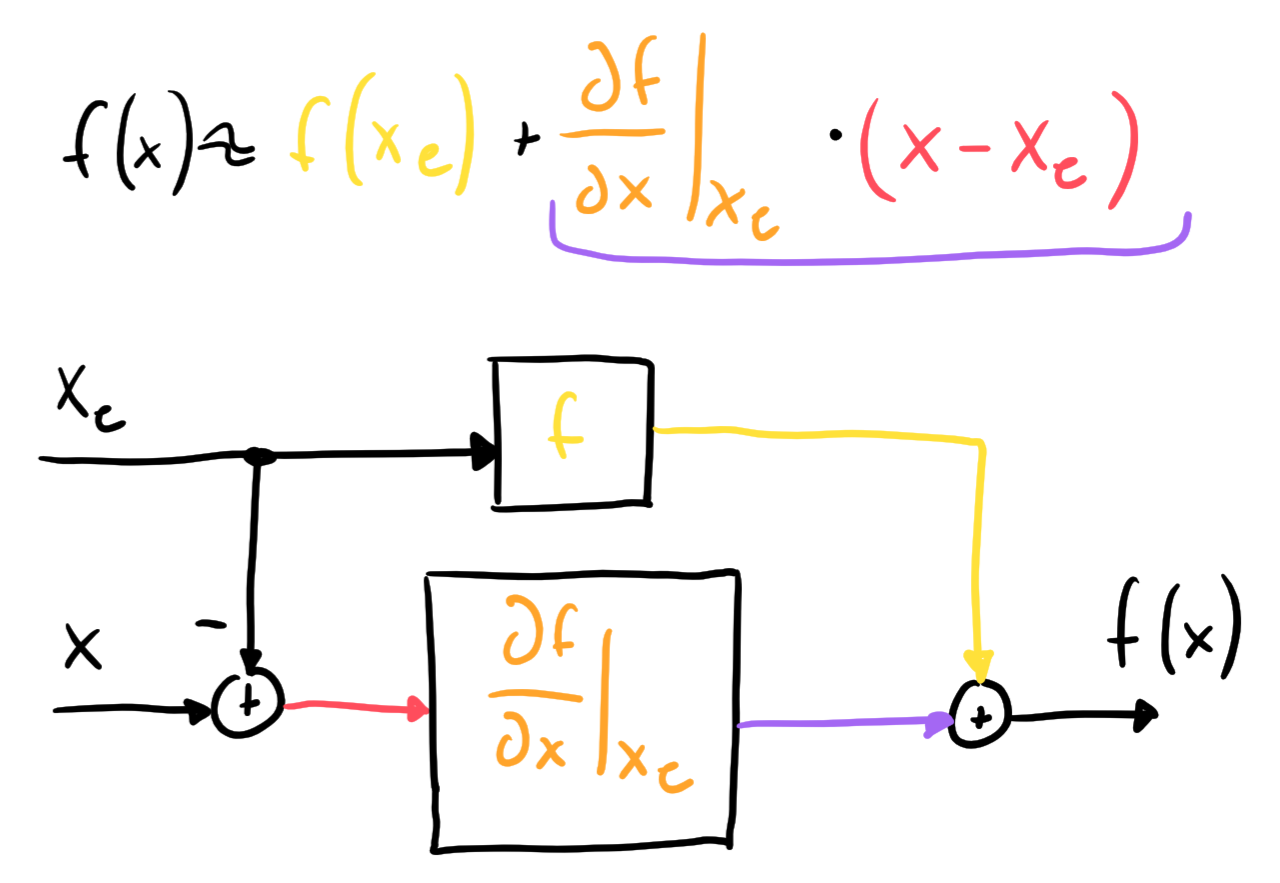 f(x) ≈ f(xₑ) + ∂f/∂x|xₑ · (x - xₑ)
xₑ
f
-
x
+
∂f/∂x|xₑ
+
f(x)